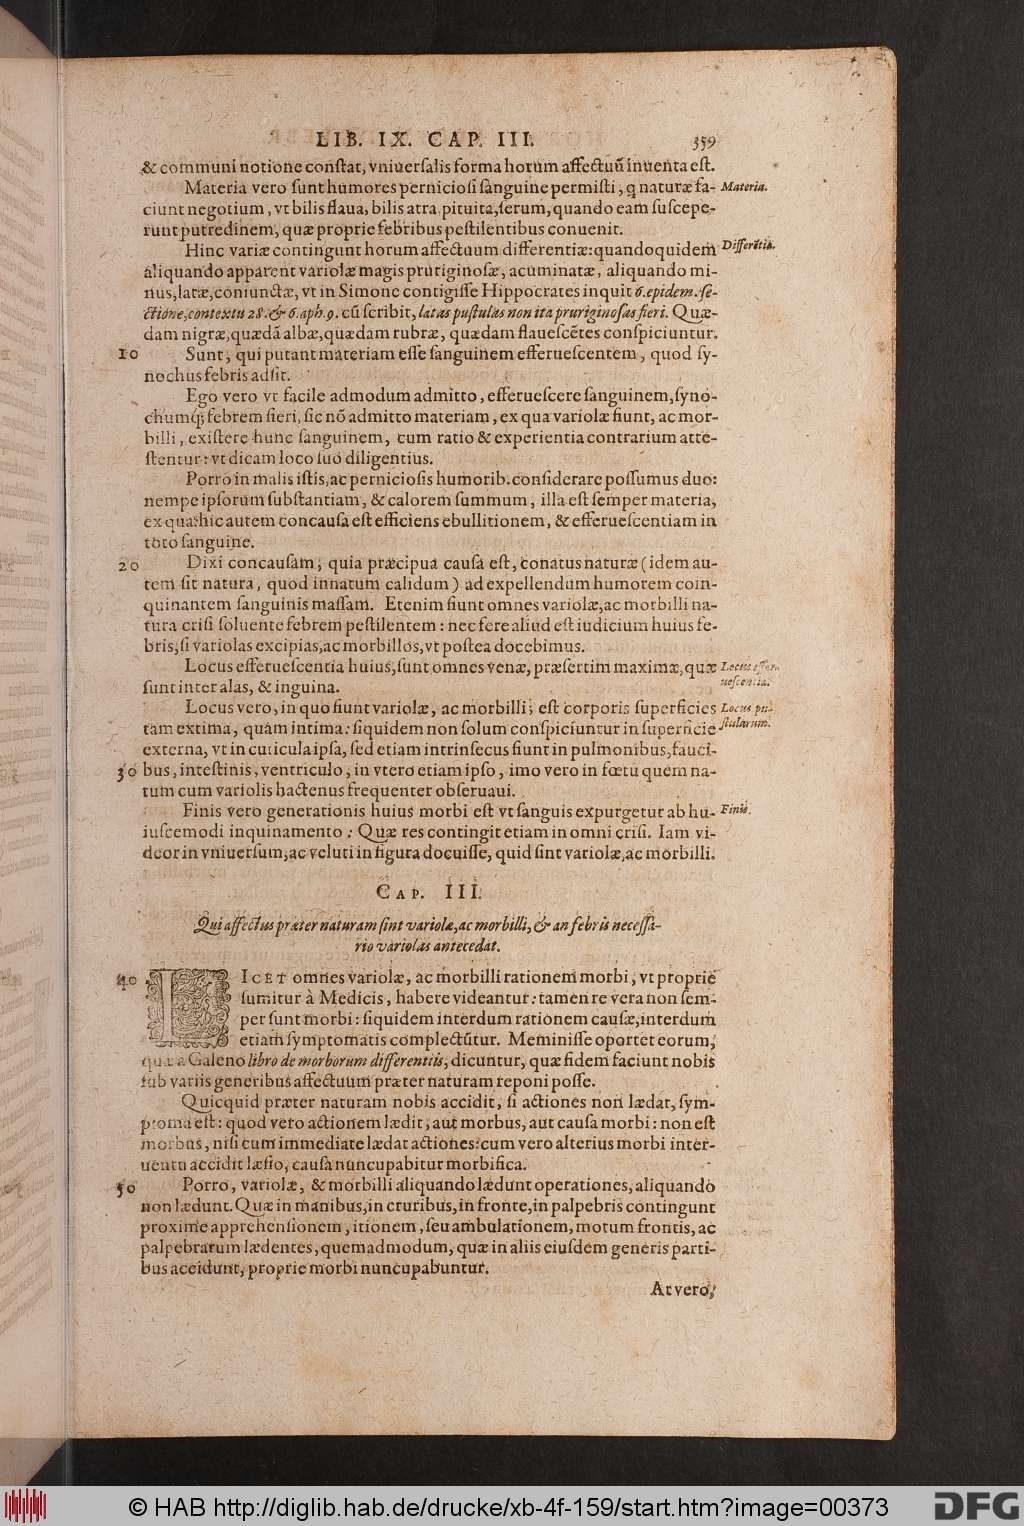 LIB. IX. CAP. III. 359
& communi notione constat, vniuersalis forma horum affectuũ inuenta est.
Materia vero sunt humores perniciosi sanguine permisti, q naturæ fa- Materia.
ciunt negotium, vt bilis flaua, bilis atra pituita, serum, quando eam suscepe-
runt putredinem, quæ proprie febribus pestilentibus conuenit.
Hinc variæ contingunt horum affectuum differentiæ: quandoquidem Differẽtia.
aliquando apparent variolæ magis pruriginosæ, acuminatæ, aliquando mi-
nus, latæ, coniunctæ, vt in Simone contigisse Hippocrates inquit 6. epidem. se-
ctione, contextu 28. & 6. aph. 9. cũ scribit, latas pustulas non ita pruriginosas fieri. Quæ-
dam nigræ, quædã albæ, quædam rubræ, quædam flauescẽtes conspiciuntur.
10 Sunt, qui putant materiam esse sanguinem efferuescentem, quod sy-
nochus febris adsit.
Ego vero vt facile admodum admitto, efferuescere sanguinem, syno-
chumq; febrem fieri, sic nõ admitto materiam, ex qua variolæ fiunt, ac mor-
billi, existere hunc sanguinem, cum ratio & experientia contrarium atte-
stentur: vt dicam loco suo diligentius.
Porro in malis istis, ac perniciosis humorib. considerare possumus duo:
nempe ipsorum substantiam, & calorem summum, illa est semper materia,
ex qua: hic autem concausa est efficiens ebullitionem, & efferuescentiam in
toto sanguine.
20 Dixi concausam, quia præcipua causa est, conatus naturæ (idem au-
tem sit natura, quod innatum calidum) ad expellendum humorem coin-
quinantem sanguinis massam. Etenim fiunt omnes variolæ, ac morbilli na-
tura crisi soluente febrem pestilentem: nec fere aliud est iudicium huius fe-
bris, si variolas excipias, ac morbillos, vt postea docebimus.
Locus efferuescentia huius, sunt omnes venæ, præsertim maximæ, quæ Locus effer-
sunt inter alas, & inguina. uescentia.
Locus vero, in quo fiunt variolæ, ac morbilli, est corporis superficies Locus pu-
tam extima, quàm intima: siquidem non solum conspiciuntur in superficie stularum.
externa, vt in cuticula ipsa, sed etiam intrinsecus fiunt in pulmonibus, fauci-
30 bus, intestinis, ventriculo, in vtero etiam ipso, imo vero in fœtu quem na-
tum cum variolis hactenus frequenter obseruaui.
Finis vero generationis huius morbi est vt sanguis expurgetur ab hu- Finis.
iuscemodi inquinamento: Quæ res contingit etiam in omni crisi. Iam vi-
deor in vniuersum, ac veluti in figura docuisse, quid sint variolæ, ac morbilli.
CAP. III.
Qui affectus præter naturam sint variolæ, ac morbilli, & an febris necessa-
rio variolas antecedat.
40 LICET omnes variolæ, ac morbilli rationem morbi, vt propriè
sumitur à Medicis, habere videantur: tamen re vera non sem-
per sunt morbi: siquidem interdum rationem causæ, interdum
etiam symptomatis complectũtur. Meminisse oportet eorum,
quæ a Galeno libro de morborum differentiis, dicuntur, quæ fidem faciunt nobis
sub variis generibus affectuum præter naturam reponi posse.
Quicquid præter naturam nobis accidit, si actiones non lædat, sym-
ptoma est: quod vero actionem lædit, aut morbus, aut causa morbi: non est
morbus, nisi cum immediate lædat actiones: cum vero alterius morbi inter-
uentu accidit læsio, causa nuncupabitur morbifica.
50 Porro, variolæ, & morbilli aliquando lædunt operationes, aliquando
non lædunt. Quæ in manibus, in cruribus, in fronte, in palpebris contingunt
proxime apprehensionem, itionem, seu ambulationem, motum frontis, ac
palpebrarum lædentes, quemadmodum, quæ in aliis eiusdem generis parti-
bus accidunt, proprie morbi nuncupabuntur.
At vero,
© HAB http://diglib.hab.de/drucke/xb-4f-159/start.htm?image=00373 DFG